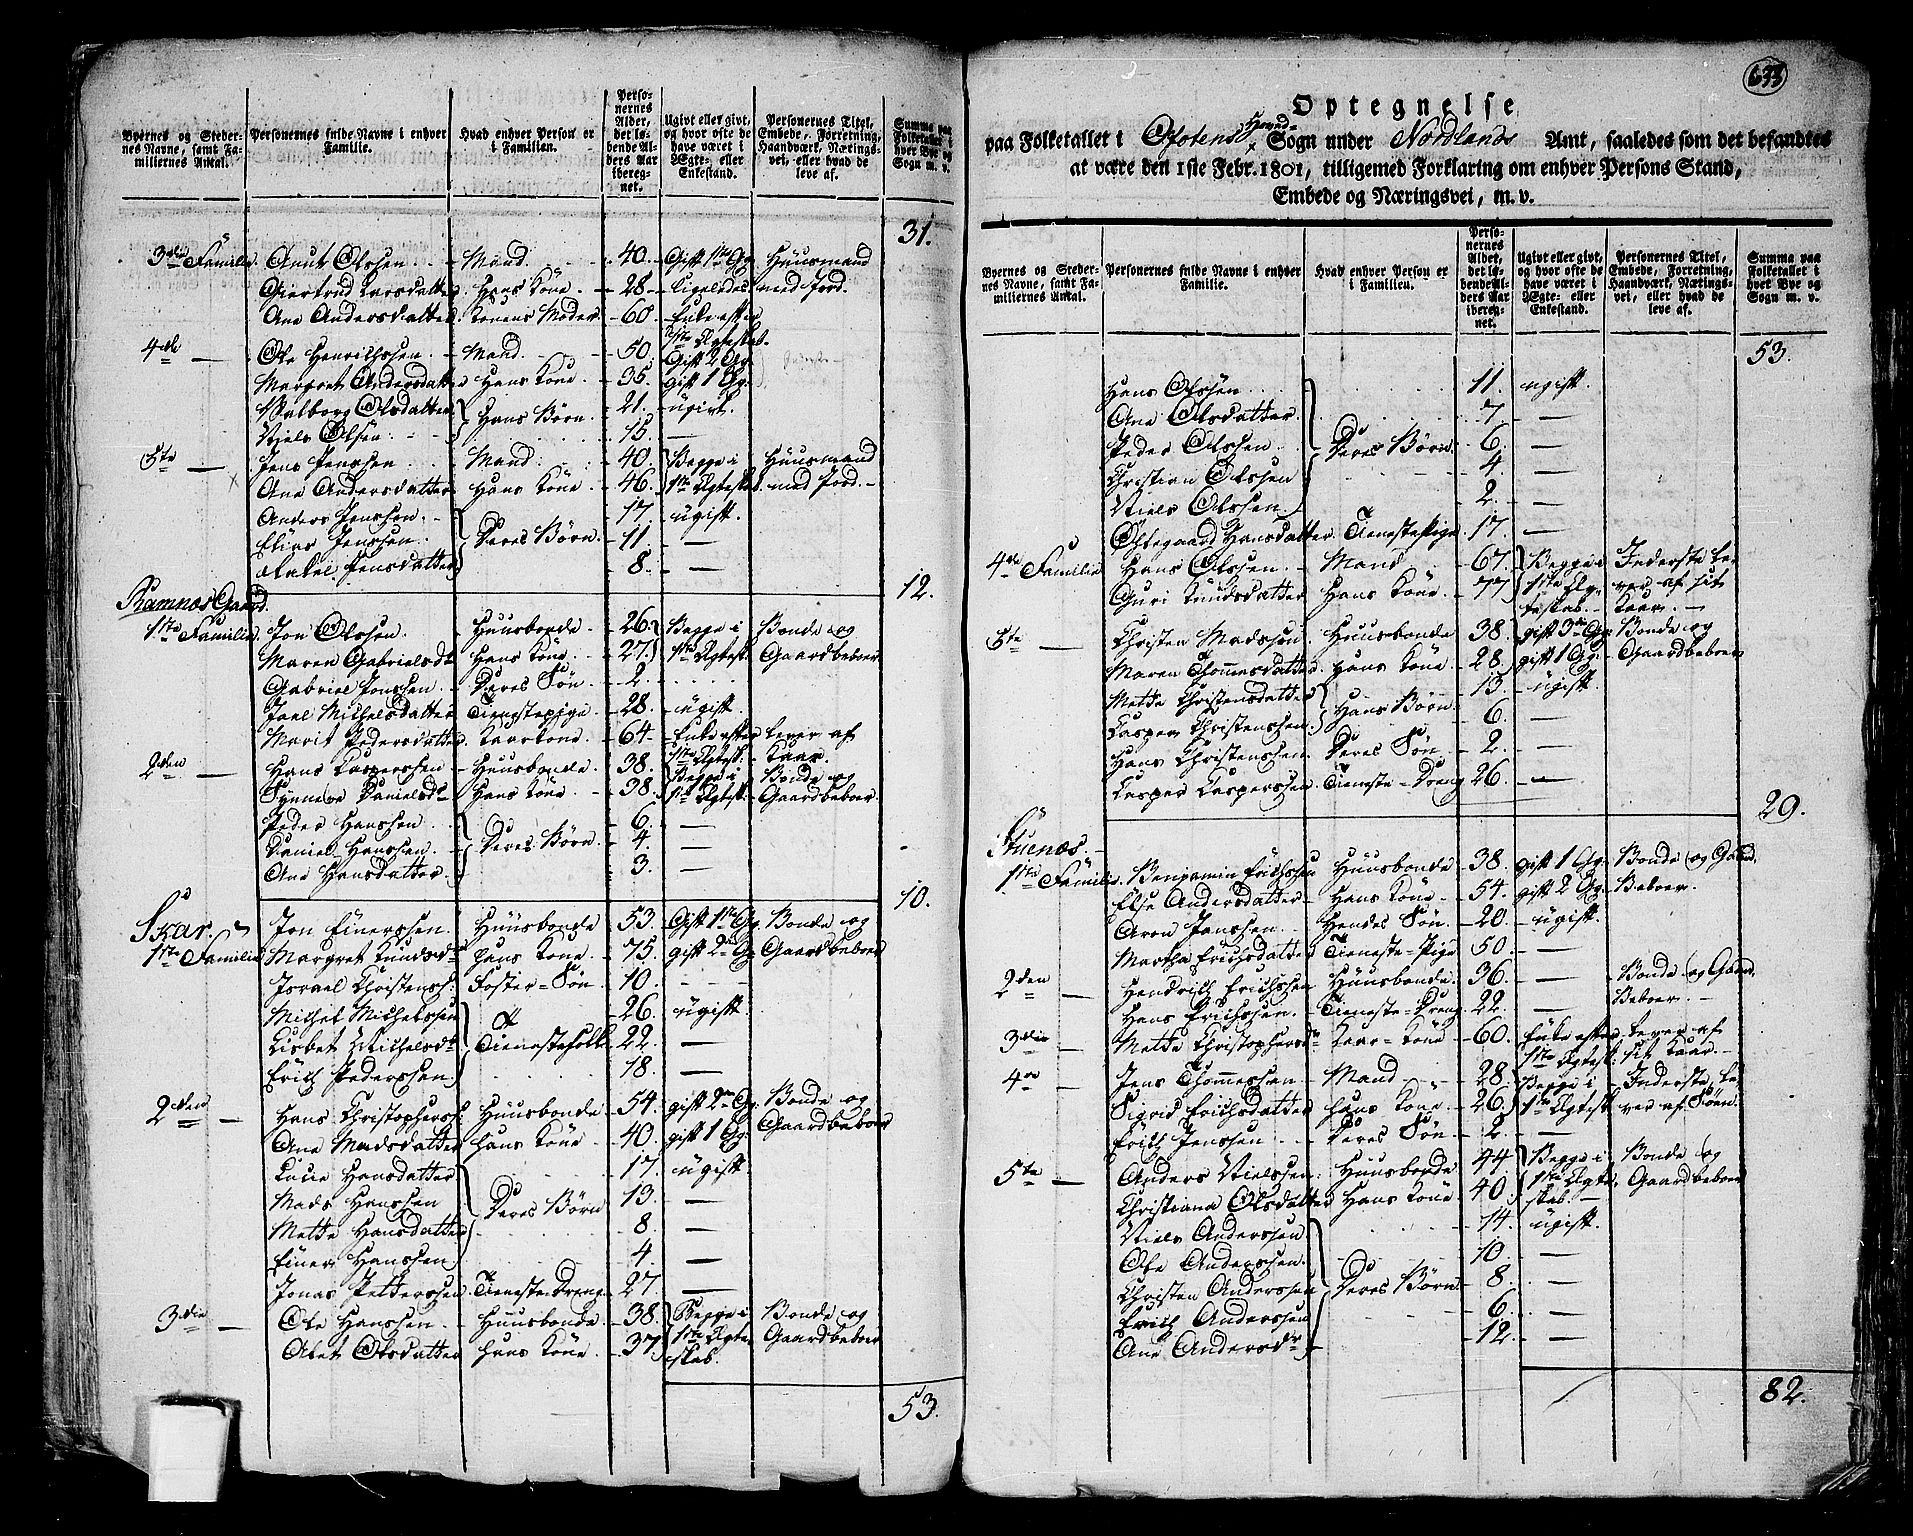 Byernes og Steder-nes Navne, samt Fa-miliernes Antal. | Personernes fulde Navne i enhver Familie. | Hvad enhver Person er i Familien. | Perso-nernes Alder, det lø-bende Al-ders Aar ibereg-net. | Ugivt eller givt, og hvor ofte de have været i Ægte- eller Enkestand. | Personernes Titel, Embede, Forretning, Haandværk, Nærings-vei, eller hvad de leve af. | Summa paa Folketallet i hver Bye og Sogn m. v.
31.
3die Familie Knut Olssen - Mand - 40. Gift 1ste Gg Huusmand
Giertrud Larsdatter Hans Kone - 28 - ligeledes med Jord.
Ane Andersdatter. Konens Moder - 60 - Enke efter 1ste Ægteskab.
4de — Ole Henrichssen - Mand - 50. Gift 2 Gg
Margret Andersdatter Hans Kone - 35. gift 1 Gg.
Walborg Olsdatter } Hans Børn - 21. - ugivt.
Niels Olsen - 15. —
5te — Jens Jenssen - Mand - 40. Begge i Huusmand
Ane Andersdatter Hans Kone - 46. 1ste Ægtesk. med Jord. -
Anders Jenssen } 17 ugift.
Elias Jenssen } Deres Børn. 11. —
Jensdatter } 8. —
12.
Ramnæs Gaard.
1ste Familie. Jon Olssen. Huusbonde - 26. Begge i Bonde og
Maren Gabrielsdr Hans Kone - 27 1ste Ægtesk. Gaardbeboer
Gabriel Jonssen. Deres Søn - 2.
Jael Michelsdatter Tienestepige - 28. - ugift.
Marit Pedersdatter. Kaarkone - 64 - Enke efter 1ste Ægtesk. Lever af Kaar.
2den — Hans Casperssen - Huusbonde. - 38. Begge i Bonde og
Synneve Danielsdr Hans Kone - 38. 1ste Ægtesk. Gaardbeboer.
Peder Hanssen } 6. —
Daniel Hanssen } Deres Børn. 4. —
Ane Hansdatter. } 3. —
10.
Skar.
1ste Familie Jon Einerssen Huusbonde - 53. Gift 1ste Gg. Bonde og
Margret Knudsdr hans Kone. - 75. gift 2de Gg Gaardbeboer
Israel Christenss: Foster-Søn - 10.
Michel Michelssen } 26. ugift.
Lisbet Michelsdr } Tienestefolk - 22. —
Erich Pederssen } 18. —
2den — Hans Christopherss. Huusbonde - 54. gift 2den Gg. Bonde og
Ane Madsdatter hans Kone - 40. gift 1 Gg. Gaardbeboer
Lucie Hansdatter } 17. ugift.
Mads Hanssen } Deres Børn 13. —
Mette Hansdatter } 8. —
Einer Hanssen } 4. —
Jonas Petterssen Tieneste Dreng 27. —
3die — Ole Hanssen - Huusbonde - 38. Begge i Bonde og
Abel Olsdatter hans Kone - 37 1ste Ægte-skab. Gaardbeboer
53.
633
Optegnelse
paa Folketallet i Ofotens Hoved-Sogn under Nordlands Amt, saaledes som det befandtes
at være den 1ste Febr. 1801, tilligemed Forklaring om enhver Persons Stand,
Embede og Næringsvei, m. v.
Byernes og Steder-nes Navne, samt Fa-miliernes Antal. | Personernes fulde Navne i enhver Familie. | Hvad enhver Person er i Familien. | Perso-nernes Alder, det lø-bende Al-ders Aar ibereg-net. | Ugivt eller givt, og hvor ofte de have været i Ægte- eller Enkestand. | Personernes Titel, Embede, Forretning, Haandværk, Nærings-vei, eller hvad de leve af. | Summa paa Folketallet i hver Bye og Sogn m. v.
53.
Hans Olssen } 11. - ugift.
Ane Olsdatter. } 7 —
Peder Olssen } Deres Børn. 6. —
Christian Olssen } 4. —
Niels Olssen. } 2. —
Ødegaard Hansdatter. Tienestepige 17. —
4de Familie Hans Olssen. - Mand - 67. Begge i Inderste le-
Guri Knudsdatter Hans Kone - 77 1ste Æg-teskab. ver af sit Kaar. —
5te — Christen Madssen. Huusbonde - 38. gift 3de Gg. Bonde og
Maren Thomesdatter hans Kone - 28. gift 1 Gg. Gaardbeboer
Mette Christensdatter } 13. - ugift.
Casper Christenssen. } Hans Børn. 6. —
Hans Christenssen. Deres Søn - 2. —
Casper Casperssen. Tieneste-Dreng 26. —
29.
Stuenæs.
1ste Familie. Benjamin Erichssen Huusbonde - 38. gift 1 Gg. Bonde og Gaard
Else Andersdatter Hans Kone - 54. gift 2 Gg. Beboer.
Aron Janssen Hendes Søn. 20. - ugift.
Martha Erichsdatter Tieneste-Pige 50. —
2den — Hendrich Erichssen Huusbonde. 36. — Bonde og Gaard
Hans Erichssen. Tieneste-Dreng 22. — Beboer. —
3die — Mette Christophersdr Kaar-Kone - 60. Enke efter 1ste Ægtesk. Lever af sit Kaar. —
4de — Jens Thomessen - Mand - 28. Begge i Inderste, le-
Sigrid Erichsdatter hans Kone - 26. 1ste Ægtesk ver af Søen.
Erich Jenssen - Deres Søn - 2. —
5te — Anders Nielssen. Huusbonde - 44. Begge i Bonde og
Christiana Olsdatter Hans Kone - 40. 1ste Ægte-skab — Gaardbeboer
Niels Anderssen } 14. ugift.
Ole Anderssen. } 10. —
Christen Anderssen } Deres Børn. 8. —
Erich Anderssen } 6. —
Ane Andersdr } 12. —
82.